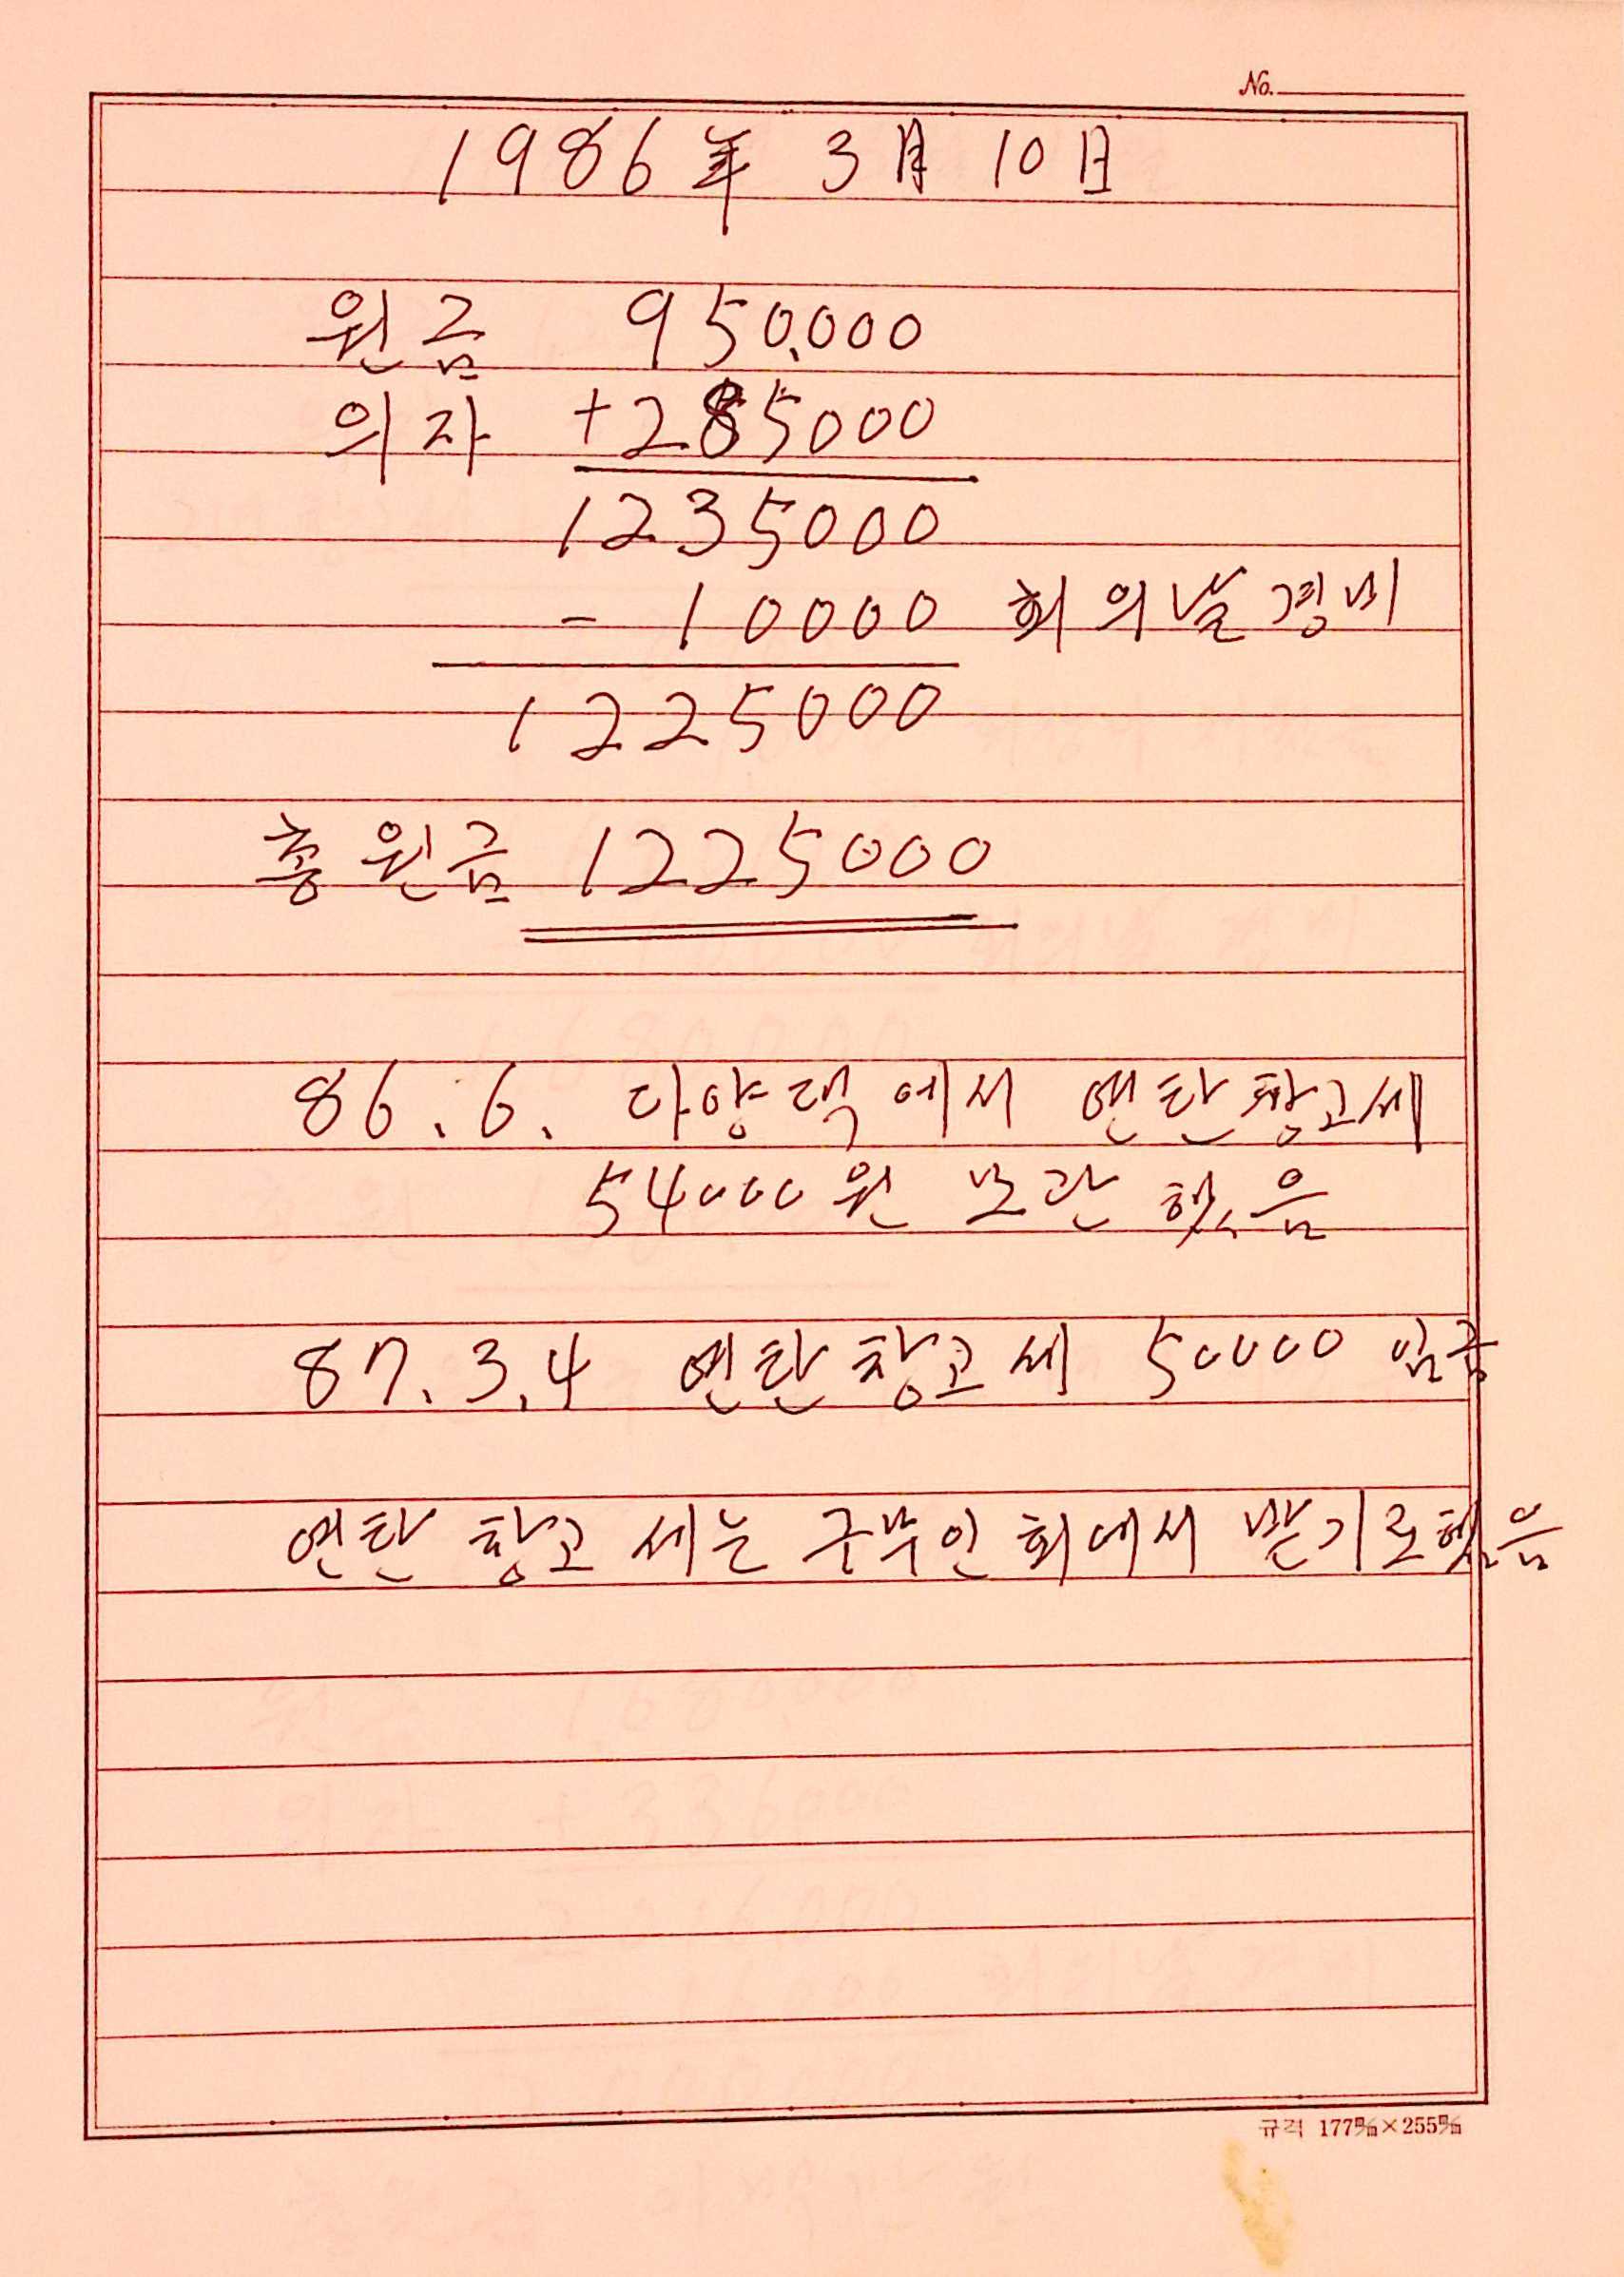 No.
1986年 3月 10日
원금 950,000
의자 +285000
1235000
- 10000 회의날경비
1225000
총원금 1225000
86.6. 다양댁에서 연탄창고세
54000원 보관했음
87.3.4 연탄창고세 50000 입금
연탄창고세는 구부인회에서 받기로했음
규격 177㎜×255㎜